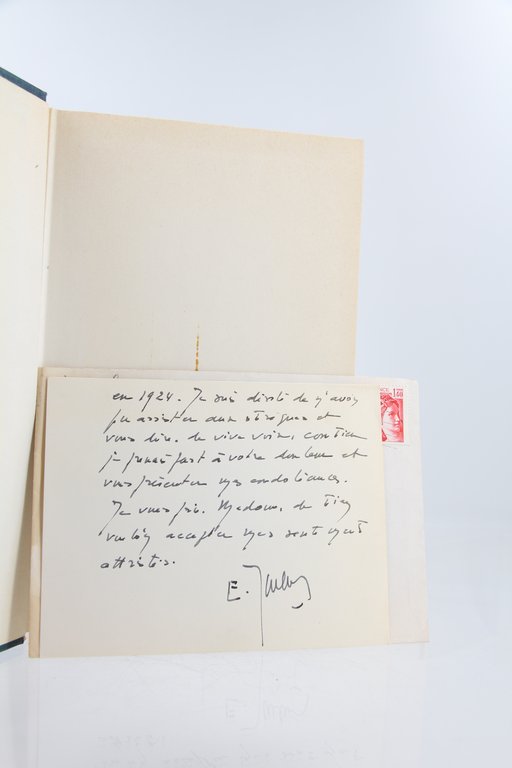 en 1924. Je suis désolé de n'avoir
pu assister aux obsèques et
vous dire, de vive voix, combien
je prends part à votre douleur et
vous présenter mes condoléances.
Je vous prie, Madame, de bien
vouloir accepter mes sentiments
attristés.
E.
1,60